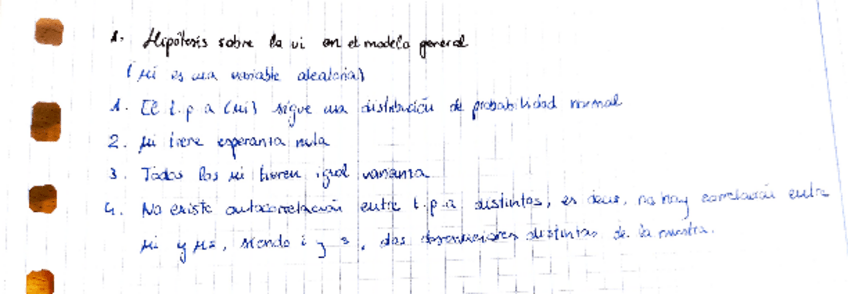 1. Hipótesis sobre la ui en el modelo general
(μi es una variable aleatoria)
1. El t.p.a (μi) sigue una distribución de probabilidad normal
2. μi tiene esperanza nula
3. Todas las μi tienen igual varianza
4. No existe autocorrelación entre t.p.a distintos, es decir, no hay correlación entre
μi y μs, siendo i y s, dos observaciones distintas de la muestra.